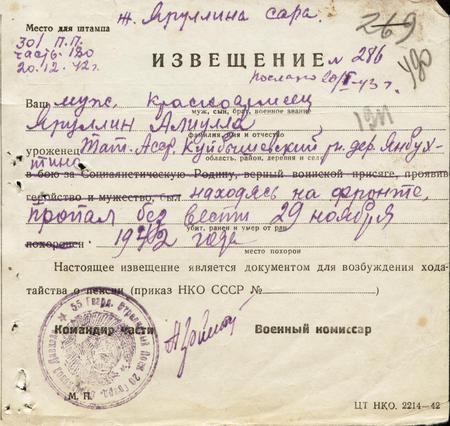 ж. Яруллина Сара.
Место для штампа
301 П.П.
часть 180
20.12.42г.
269
480
ИЗВЕЩЕНИЕ № 286
послано 20/I-43г.
Ваш муж, красноармеец
муж, сын, брат, военное звание
Яруллин
фамилия, имя и отчество
уроженец Тат. Асср, Куйбышевский рн. дер. Янбух-
тино
область, район, деревня и село
в бою за Социалистическую Родину, верный воинской присяге, проявив
геройство и мужество, был находясь на фронте,
пропал без вести 29 ноября
убит, ранен и умер от ран
похоронен 1942 года
место похорон
Настоящее извещение является документом для возбуждения хода-
тайства о пенсии (приказ НКО СССР №
Командир части
Военный комиссар
М. П.
ЦТ НКО. 2214—42